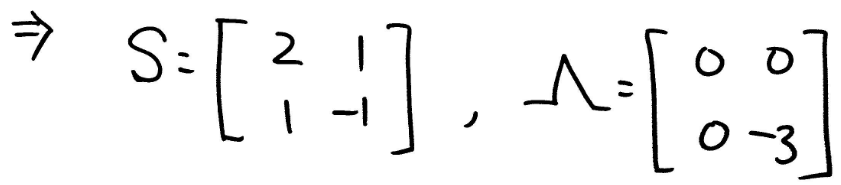 ⇒ S = [ 2 1 ; 1 -1 ] , Λ = [ 0 0 ; 0 -3 ]